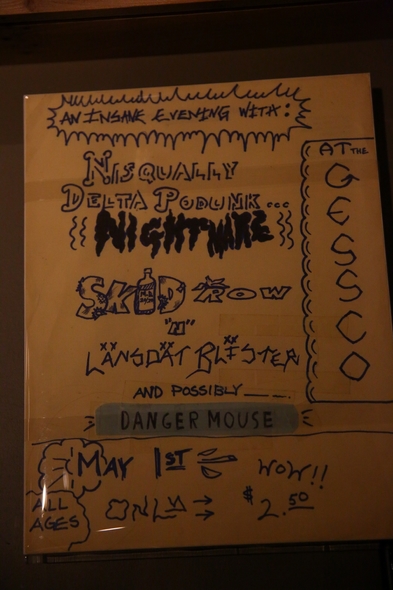 AN INSANE EVENING WITH:
NISQUALLY
DELTA PODUNK...
NIGHTMARE
SKID ROW
"N"
LÄNSDÄT BLÏSTER
AND POSSIBLY____
DANGER MOUSE
AT THE
GESSCO
MAY 1ST
WOW!!
ALL AGES
ONLY → → $2.50